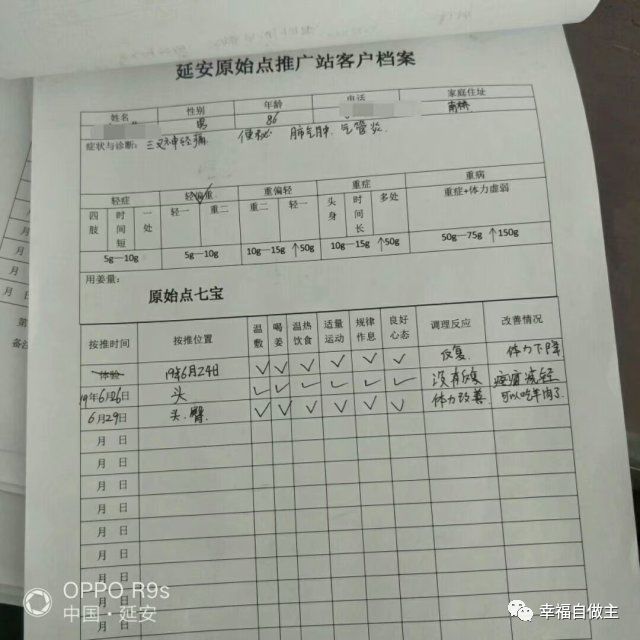 延安原始点推广站客户档案
姓名 性别 年龄 电话 家庭住址
男 86 南桥
症状与诊断：三叉神经痛 便秘 肺气肿 气管炎
轻症 轻偏重 重偏轻 重症 重病
四肢 时间短 一处 轻一 重二 重二 轻一 头身 时间长 多处 重症+体力虚弱
5g—10g 5g—10g 10g—15g ↑50g 10g—15g ↑50g 50g—75g ↑150g
用姜量：
原始点七宝
按推时间 按推位置 温敷 喝姜 温热饮食 适量运动 规律作息 良好心态 调理反应 改善情况
体验 19年6月24日 ✓ ✓ ✓ ✓ ✓ ✓ 反复 体力下降
19年6月26日 头 ✓ ✓ ✓ ✓ ✓ ✓ 没有反复 疼痛减轻
6月29日 头.臀 ✓ ✓ ✓ ✓ ✓ ✓ 体力改善 可以吃羊肉了
月 日
月 日
月 日
月 日
月 日
月 日
月 日
月 日
月 日
月 日
月 日
备注
OPPO R9s
中国·延安
幸福自做主